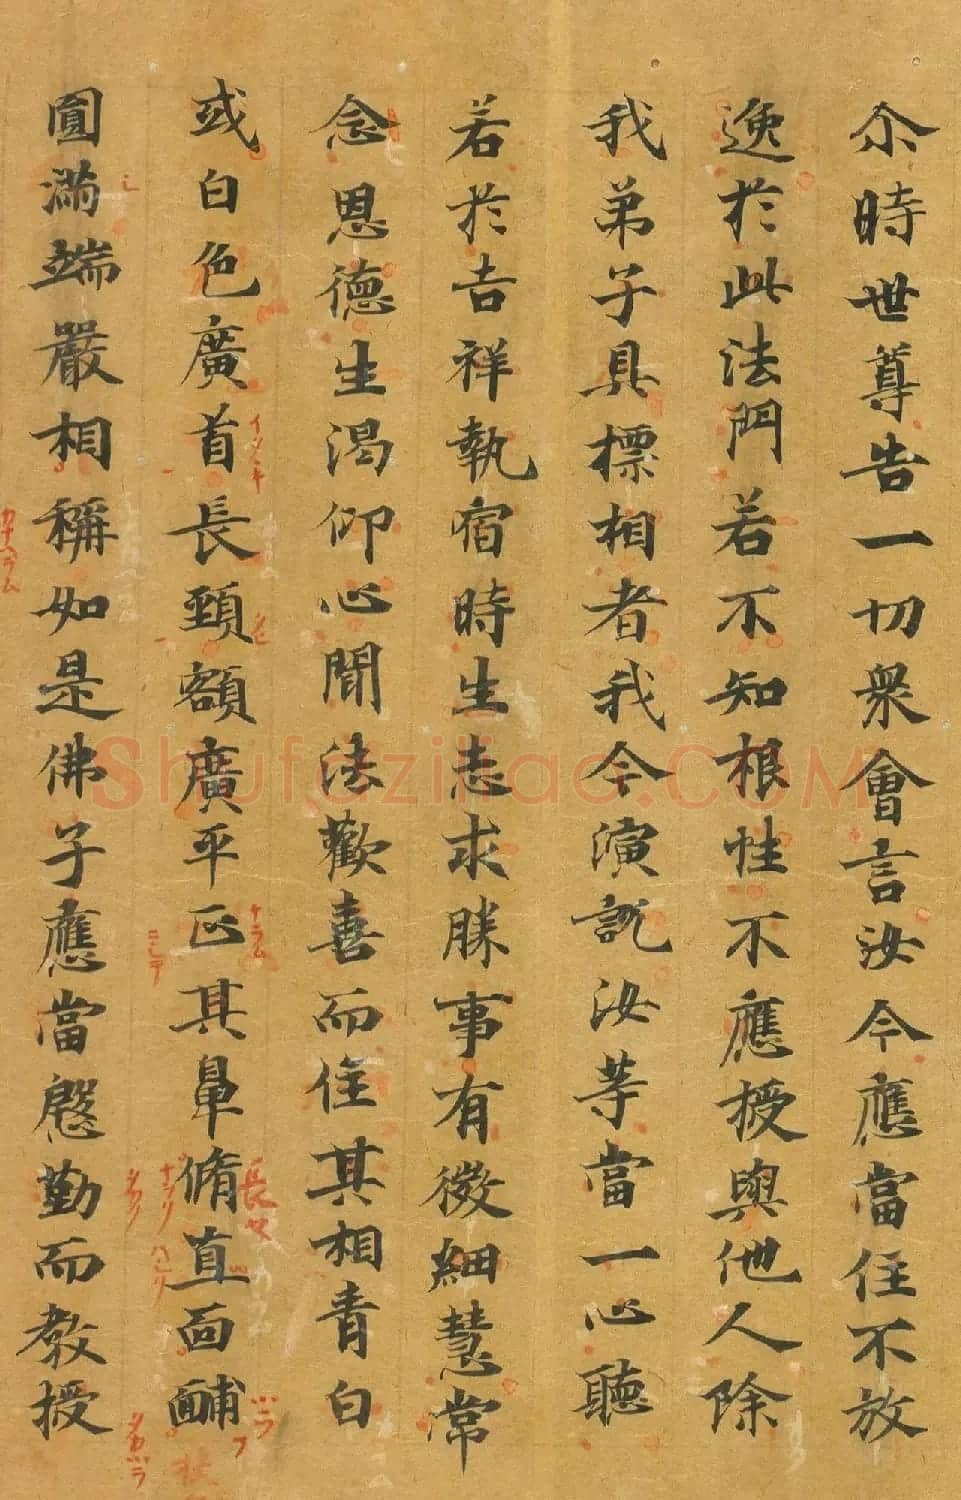 尒時世尊告一切衆會言汝今應當住不放
逸於此法門若不知根性不應授與他人除
我弟子具標相者我今演說汝等當一心聽
若於吉祥執宿時生志求勝事有微細慧常
念恩德生渴仰心聞法歡喜而住其相青白
或白色廣首長頸額廣平正其鼻脩直面䩉
圓滿端嚴相稱如是佛子應當慇勤而教授
Shufaziliao.COM